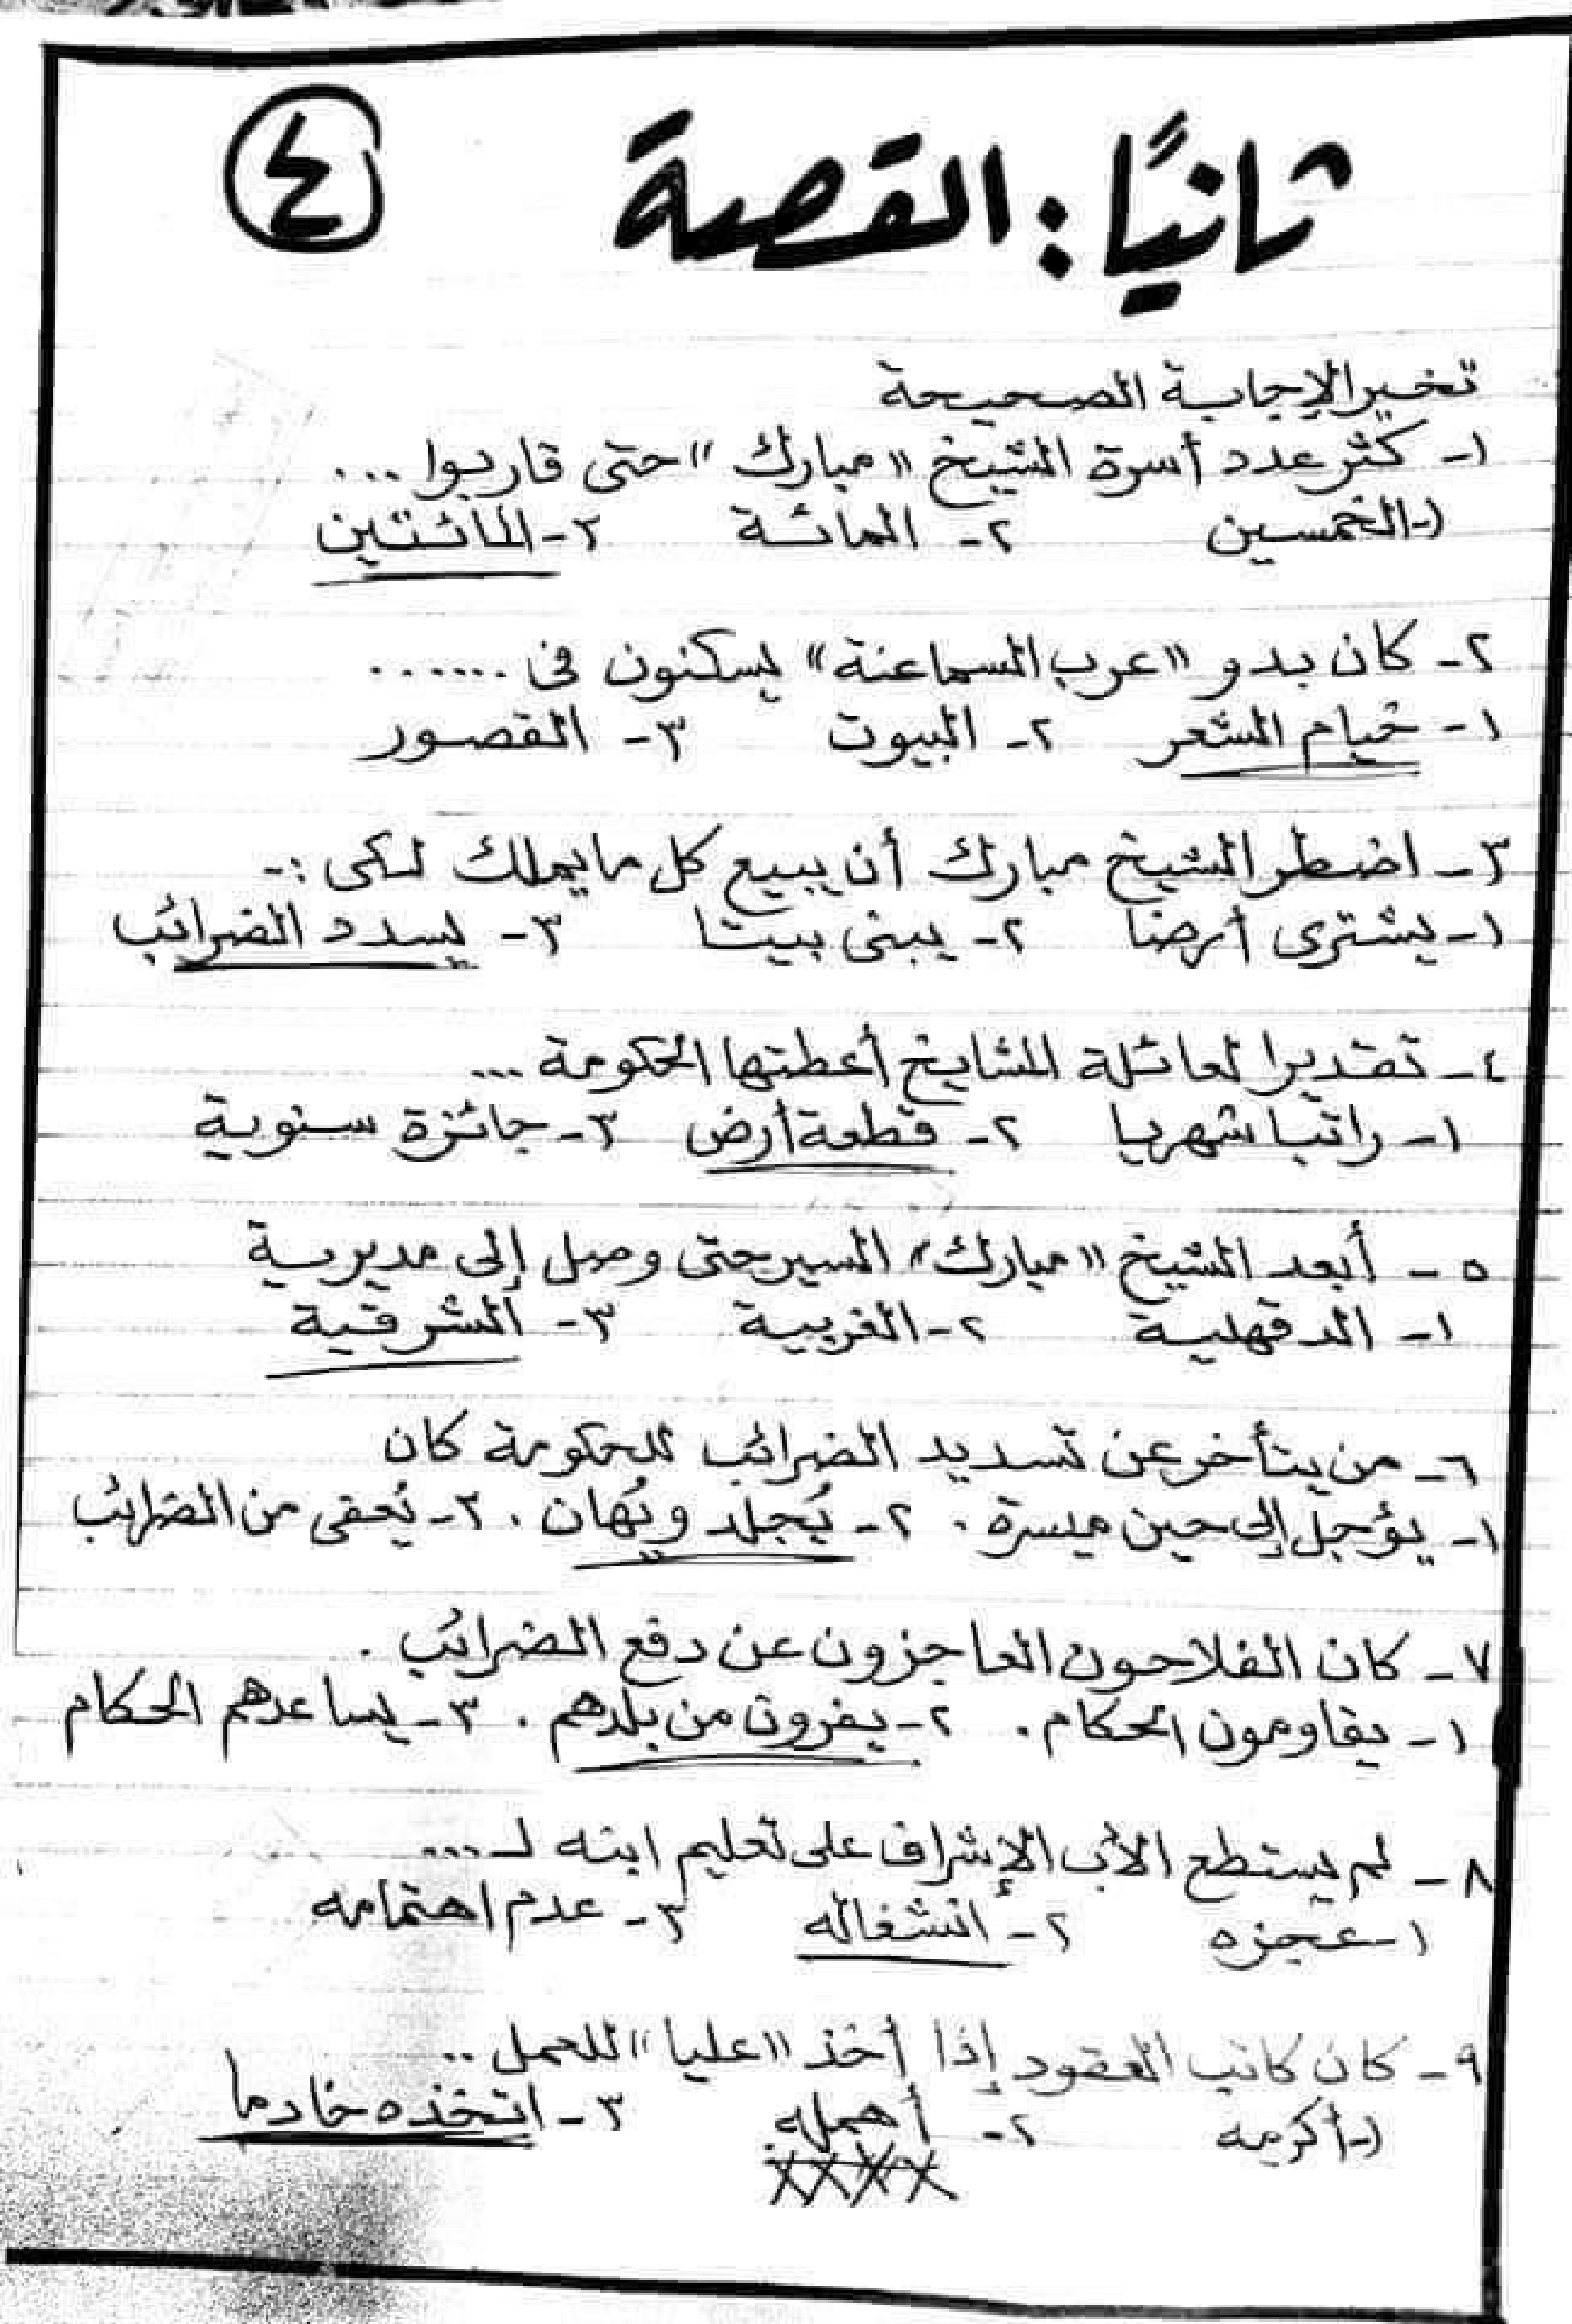 ثانيًا: القصة
٤
تخير الإجابة الصحيحة
١- كثر عدد أسرة الشيخ "مبارك" حتى قاربوا ...
١- الخمسين ٢- المائة ٣- المائتين
٢- كان بدو "عرب السماعنة" يسكنون فى ......
١- خيام الشعر ٢- البيوت ٣- القصور
٣- اضطر الشيخ مبارك أن يبيع كل ما يملك لكى :-
١- يشترى أرضا ٢- يبنى بيتا ٣- يسدد الضرائب
٤- تقديرا لعائلة المشايخ أعطتها الحكومة ...
١- راتبا شهريا ٢- قطعة أرض ٣- جائزة سنوية
٥- أبعد الشيخ "مبارك" السير حتى وصل إلى مديرية
١- الدقهلية ٢- الغربية ٣- الشرقية
٦- من يتأخر عن تسديد الضرائب للحكومة كان
١- يؤجل إلى حين ميسرة. ٢- يُجلد ويُهان. ٣- يُعفى من الضرائب
٧- كان الفلاحون العاجزون عن دفع الضرائب.
١- يقاومون الحكام. ٢- يفرون من بلدهم. ٣- يساعدهم الحكام
٨- لم يستطع الأب الإشراف على تعليم ابنه لـ ...
١- عجزه ٢- انشغاله ٣- عدم اهتمامه
٩- كان كاتب العقود إذا أخذ "عليا" للعمل ..
١- أكرمه ٢- أهمله ٣- اتخذه خادما